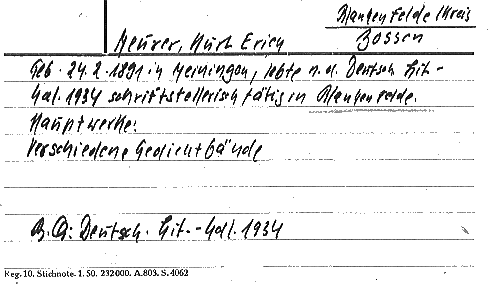 Blankenfelde/Kreis
Meurer, Kurt Erich Zossen
Geb. 24.2.1891 in Meiningen, lebte n. d. Deutsch. Lit.-
Kal. 1934 schriftstellerisch tätig in Blankenfelde.
Hauptwerke:
Verschiedene Gedichtbände
B. Q: Deutsch. Lit.-Kal. 1934
Reg. 10. Stichnote. 1. 50. 232000. A.803. S. 4062